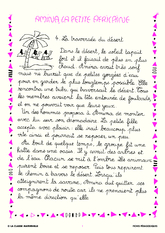 AMINA LA PETITE AFRICAINE
4. La traversée du désert
Dans le désert, le soleil tapait
fort et il faisait de plus en plus
chaud. Amina avait très soif
mais ne buvait que de petites gorgées d'eau
pour en garder le plus longtemps possible. Elle
rencontra une tribu qui traversait le désert. Tous
les membres avaient la tête entourée de foulards
et on ne pouvait voir que leurs yeux.
Un des hommes proposa à Amina de monter
avec lui sur son dromadaire. La petite fille
accepta avec plaisir, elle avait beaucoup plus
et pourrait se reposer un peu.
Au bout de quelque temps, le groupe fit une
halte dans une oasis. Il y avait des arbres et
de l'eau. Chacun se mit à l'ombre. Ils
burent et se reposèrent. Puis tous reprirent
le chemin à travers le désert. Lorsqu'ils
atteignirent la savane, Amina dut quitter ses
compagnons de route car ils ne prenaient plus
la même direction qu'elle.